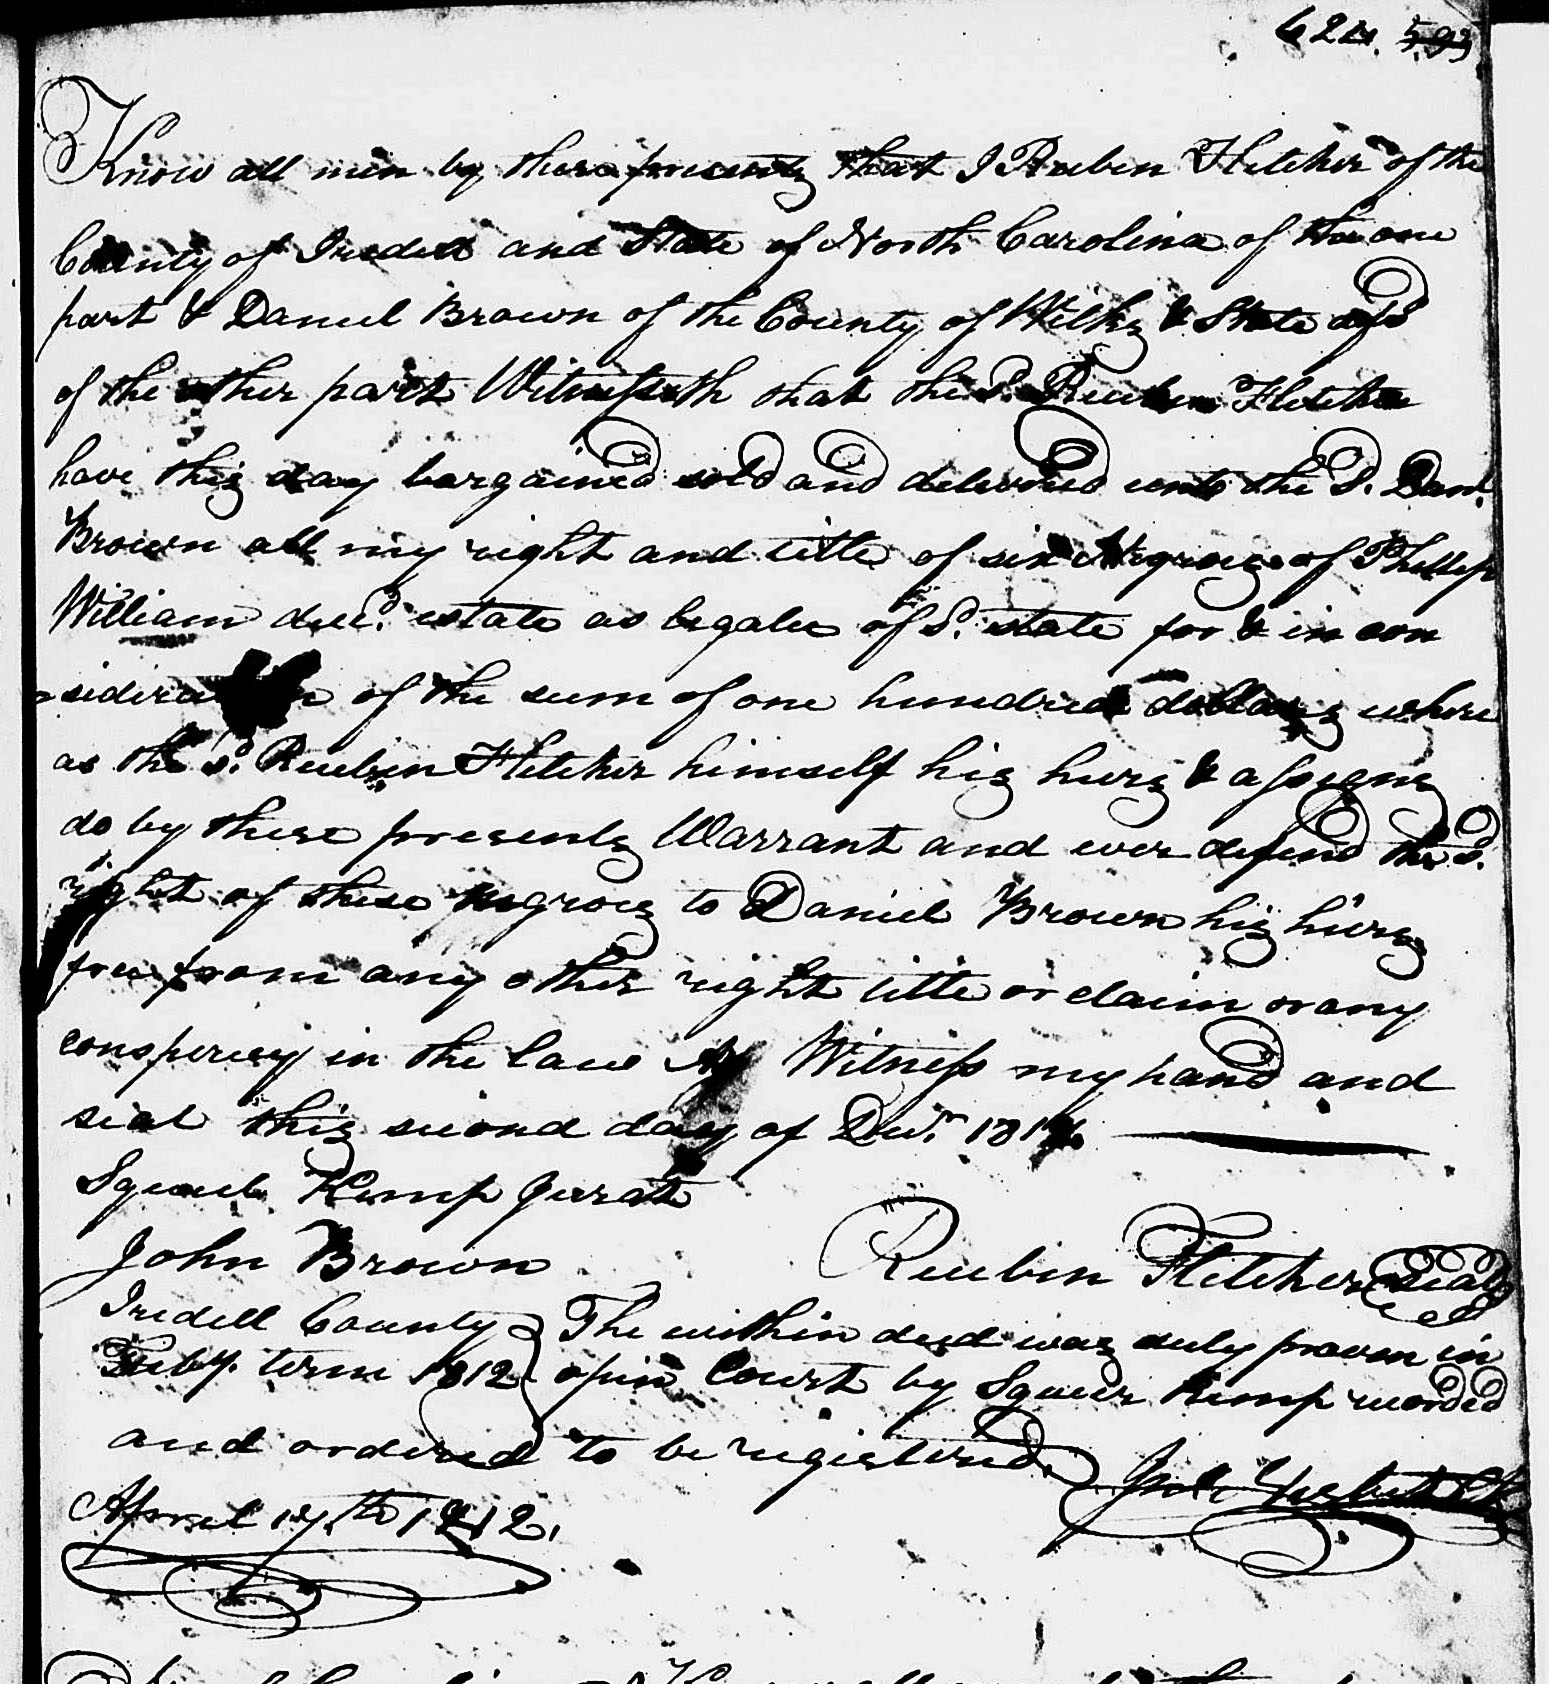 624. 593
Know all men by these presents that I Reuben Fletcher of the
County of Iredell and State of North Carolina of the one
part & Daniel Brown of the County of Wilks & State afsd
of the other part Witnesseth that the Sd. Reuben Fletcher
have this day bargained sold and delivered unto the Sd. Danl.
Brown all my right and title of six Negroes of Phillip
William decd. estate as legatee of Sd. state for & in con
sideration of the sum of one hundred dollars where
as the sd. Reubin Fletcher himself his heirs & assigns
do by these presents Warrant and ever defend the sd.
right of these negroes to Daniel Brown his heirs
free from any other right title or claim or any
conspericy in the law Witness my hand and
seal this second day of Decr. 181
Squire Kemp Jurat
John Brown
Reubin Fletcher Seal
Iredell County } The within deed was duly proven in
Feby. term 1812 } open Court by Squire Kemp recorded
and ordered to be registered.
April 17th 1812.